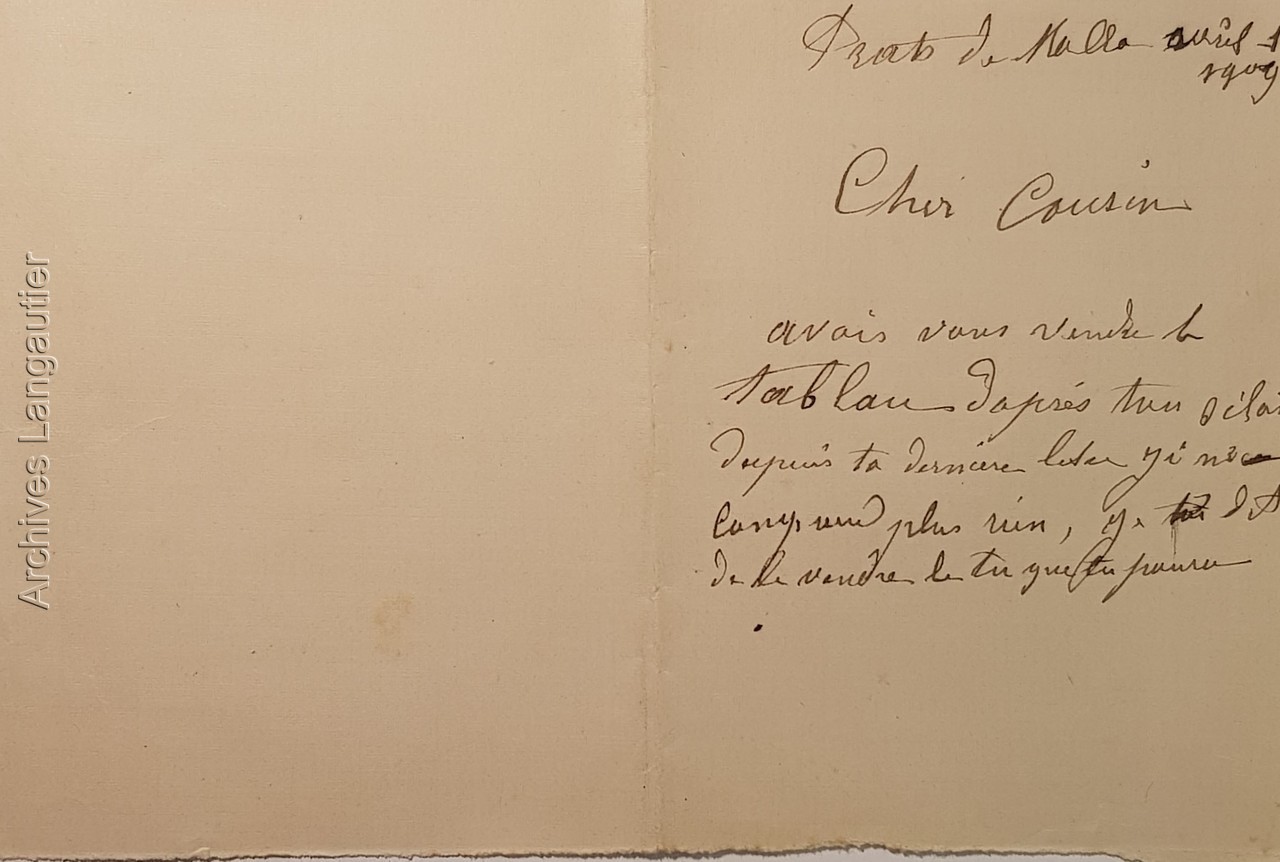 Archives Langautier
Prats de Mollo avril 1
1909
Cher Cousin
avois vous vendre le
tablau d'aprés ton
depuis ta derniere letre
plus rien, dit
de le vendre le tu que tu poura